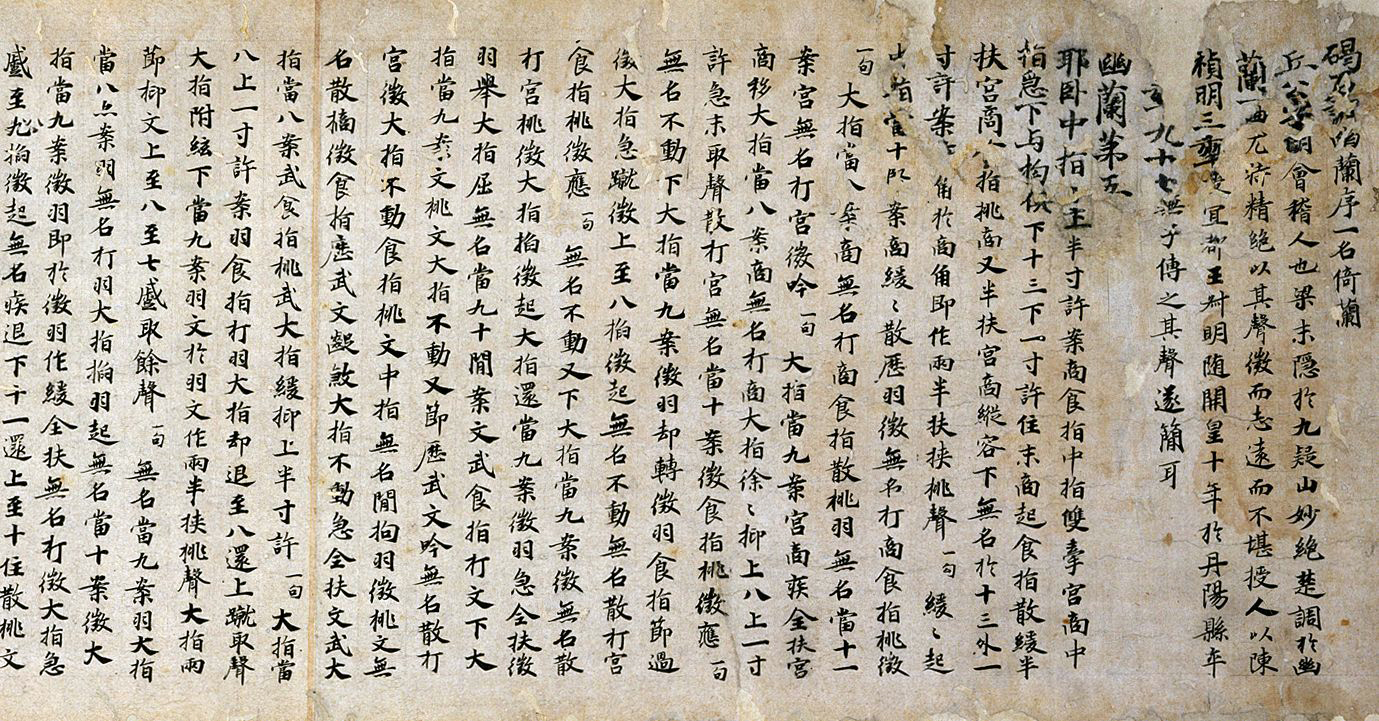 碣石調幽蘭序一名倚蘭
丘公字明會稽人也梁末隱於九疑山妙絶楚調於幽
蘭一曲尤特精絶以其聲微而志遠而不堪授人以陳
禎明三年授宜都王叔明随開皇十年於丹陽縣年
九十七無子傳之其聲遂簡耳
幽蘭第五
耶卧中指〻半寸許案商食指中指雙牽宮商中
指急下与拘俱下十三下一寸許住末商起食指散緩半
扶宮商食指挑商又半扶宮商縱容下無名於十三外一
寸許案商角於商角即作兩半扶挾挑聲一句緩〻起
指當十案商緩〻散歷羽徵無名打商食指挑徵
一句大指當八案商無名打商食指散挑羽無名當十一
案宮無名打宮徵吟一句大指當九案宮商疾全扶宮
商移大指當八案商無名打商大指徐〻抑上八上一寸
許急末取聲散打宮無名當十案徵食指挑徵應一句
無名不動下大指當九案徵羽却轉徵羽食指節過
徵大指急蹴徵上至八掐徵起無名不動無名散打宮
食指挑徵應一句無名不動又下大指當九案徵無名散
打宮桃徵大指掐徵起大指還當九案徵羽急全扶徵
羽舉大指屈無名當九十間案文武食指打文下大
指當九案文桃文大指不動又節歷武文吟無名散打
宮徵大指不動食指挑文中指無名間拘羽徵桃文無
名散摘徵食指歷武文齪煞大指不動急全扶文武大
指當八案武食指桃武大指緩抑上半寸許一句大指當
八上一寸許案羽食指打羽大指却退至八還上蹴取聲
大指附絃下當九案羽文於羽文作兩半挾挑聲大指兩
節抑文上至八至七蹙取餘聲一句無名當九案羽大指
當八案羽無名打羽大指掐羽起無名當十案徵大
指當九案徵羽即於徵羽作緩全扶無名打徵大指急
蹙至八掐徵起無名疾退下十一還上至十住散桃文